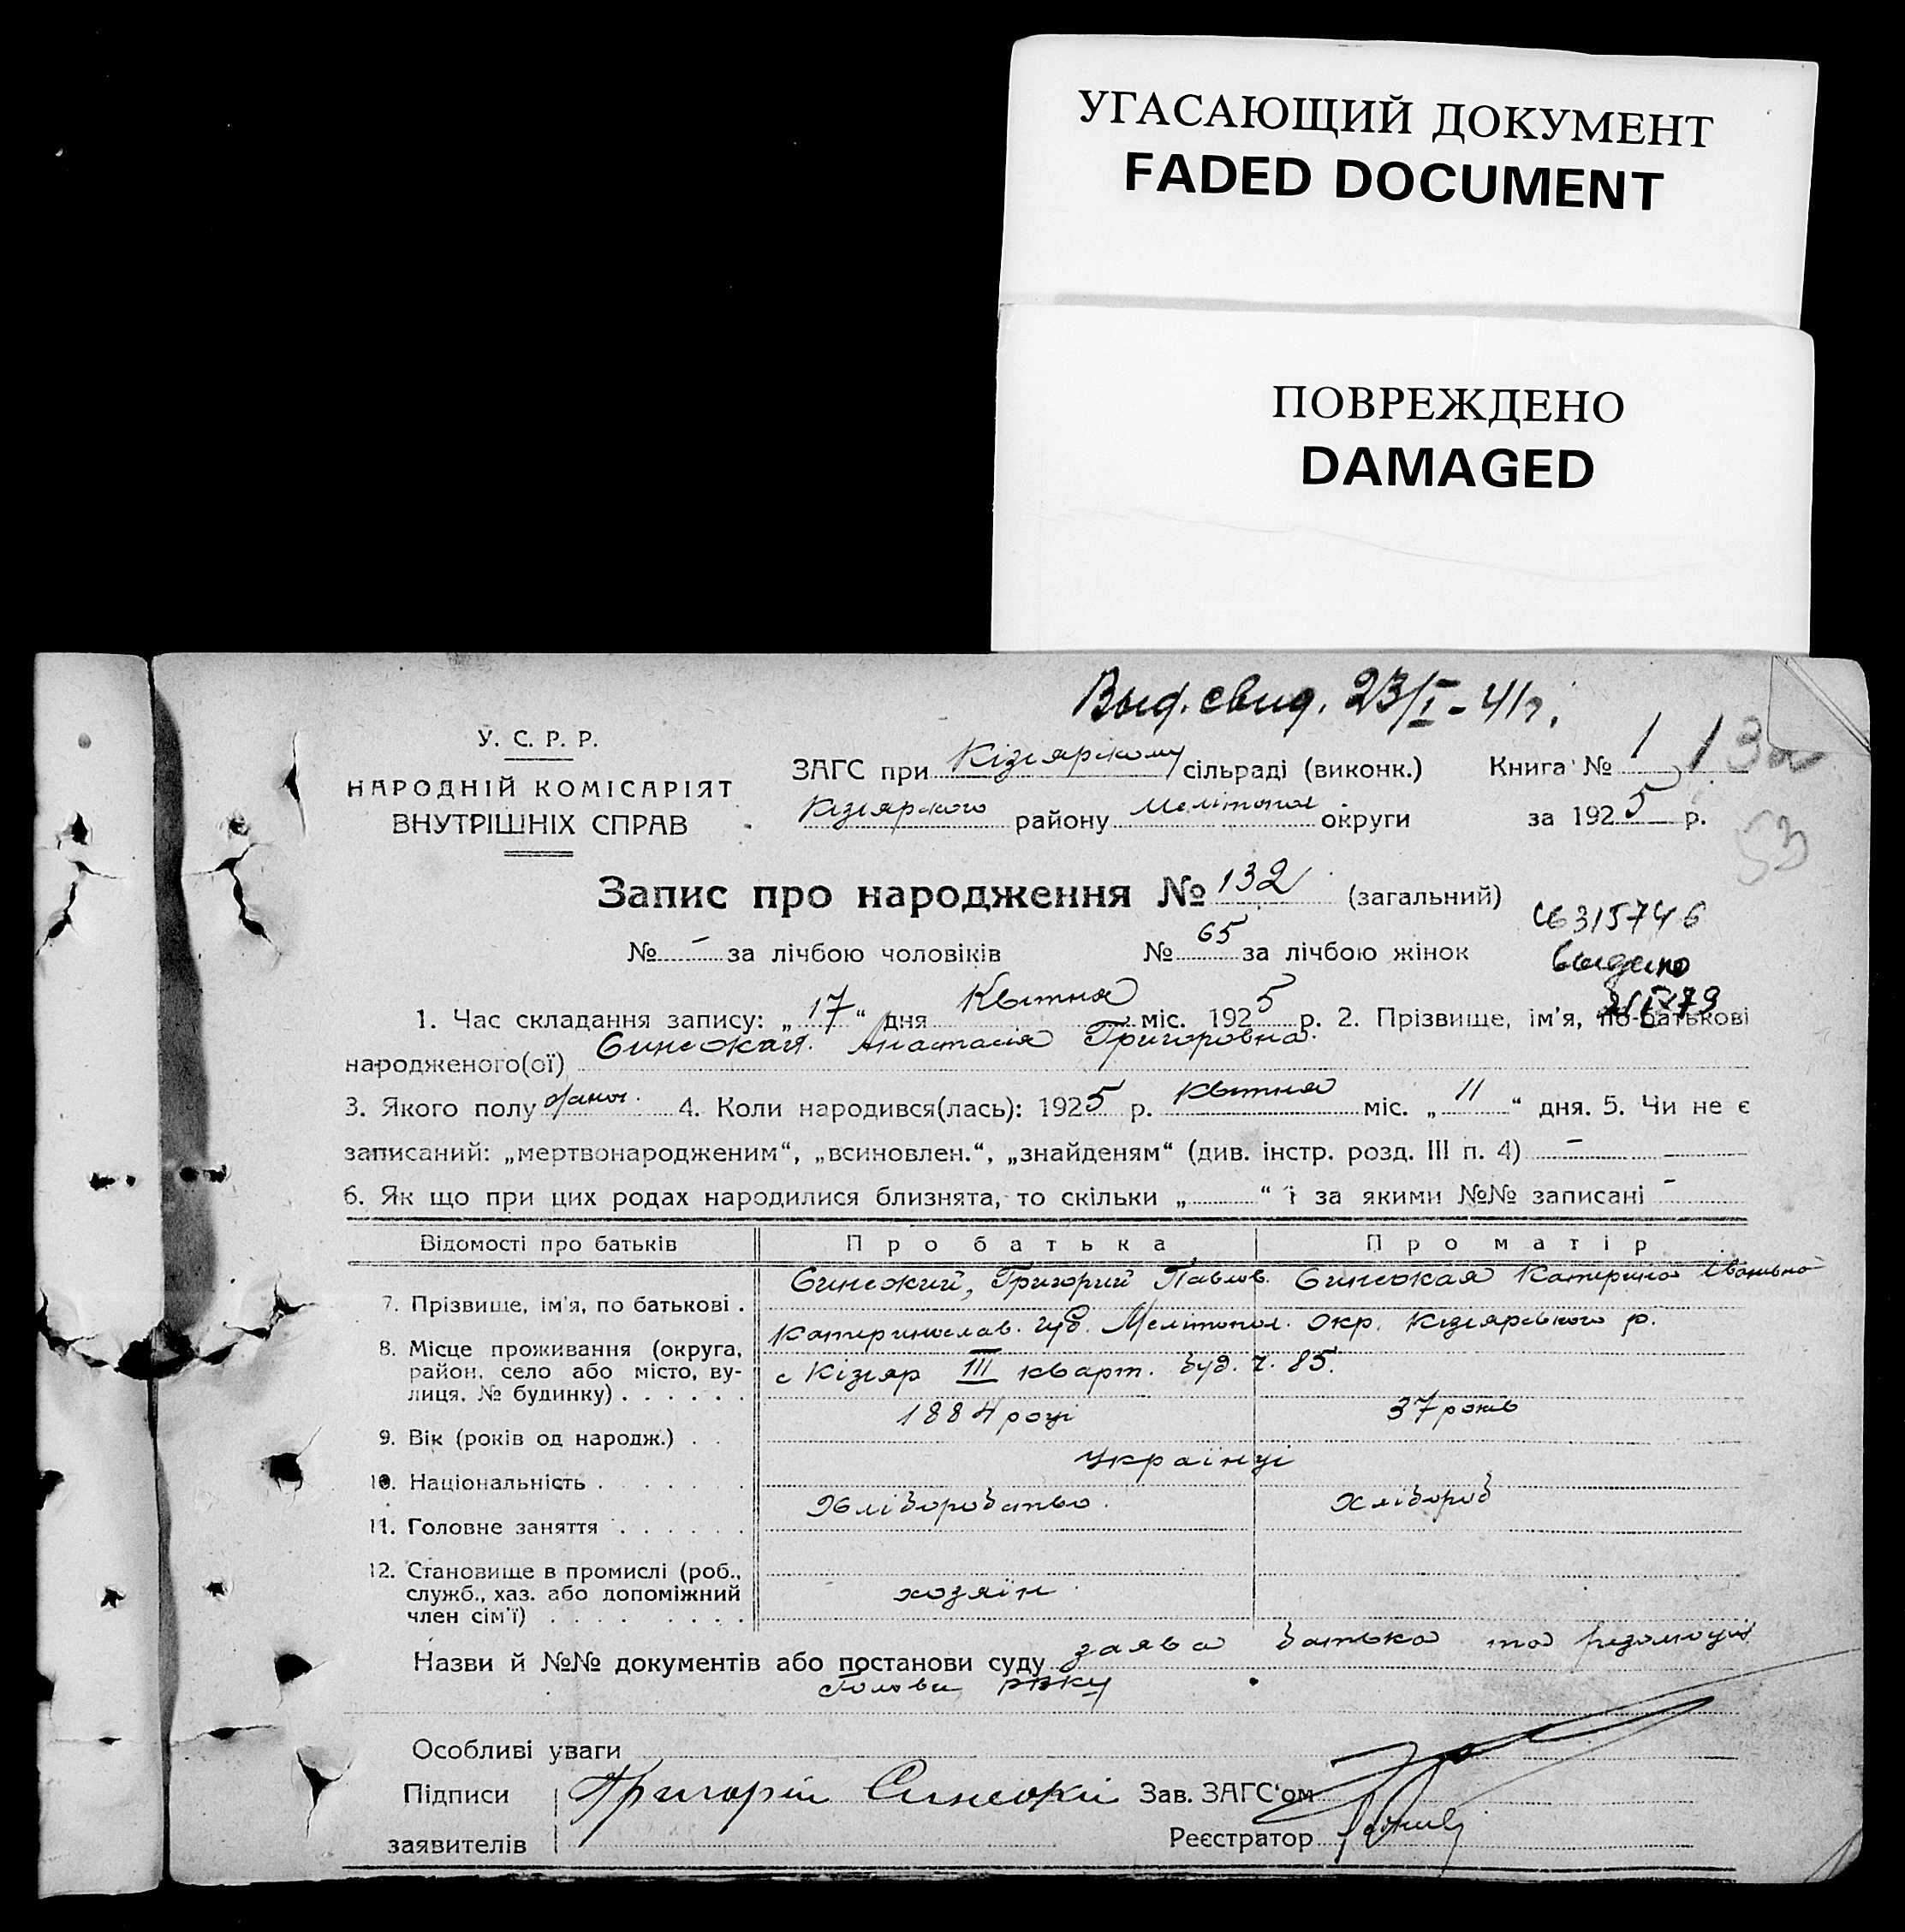 УГАСАЮЩИЙ ДОКУМЕНТ
FADED DOCUMENT
ПОВРЕЖДЕНО
DAMAGED
Выд. свид. 23/I - 41г.
У. С. Р. Р.
НАРОДНІЙ КОМІСАРІЯТ
ВНУТРІШНІХ СПРАВ
ЗАГС при Кізіярскому сільраді (виконк.) Книга № 1 13
Кізіярского району Мелітопол округи за 1925 р.
53
Запис про народження № 132 (загальний)
№ - за лічбою чоловіків № 65 за лічбою жінок
6315746
выдано
1. Час складання запису: „17“ дня Квітня міс. 1925 р. 2. Прізвище, ім'я, по-батькові
народженого(ої) Синеокая Анастасія Григоровна.
3. Якого полу жіноч. 4. Коли народився(лась): 1925 р. Квітня міс. „11“ дня. 5. Чи не є
записаний: „мертвонародженим“, „всиновлен.“, „знайденям“ (див. інстр. розд. III п. 4) -
6. Як що при цих родах народилися близнята, то скільки „ “ і за якими №№ записані -
Відомості про батьків Про батька Про матір
7. Прізвище, ім'я, по батькові . Синеокий, Григорий Павлов. Синеокая Катерина Івановна
8. Місце проживання (округа, район, село або місто, вулиця, № будинку) . . . . . . Катеринослав. губ. Мелітопол. Окр. Кізіярського р.
с Кізіяр III кварт. буд. ч. 85.
9. Вік (років од народж.) . . 1884 році 37 років
10. Національність . . . . . . Українці
11. Головне заняття . . . . . . Хліборобство. Хлібороб
12. Становище в промислі (роб., служб., хаз. або допоміжний член сім'ї) . . . . . . . . хозяїн
Назви й №№ документів або постанови суду заява батька та резолюція
Голови РВКу
Особливі уваги
Підписи Григорій Синеокі Зав. ЗАГС'ом
заявителів Реєстратор